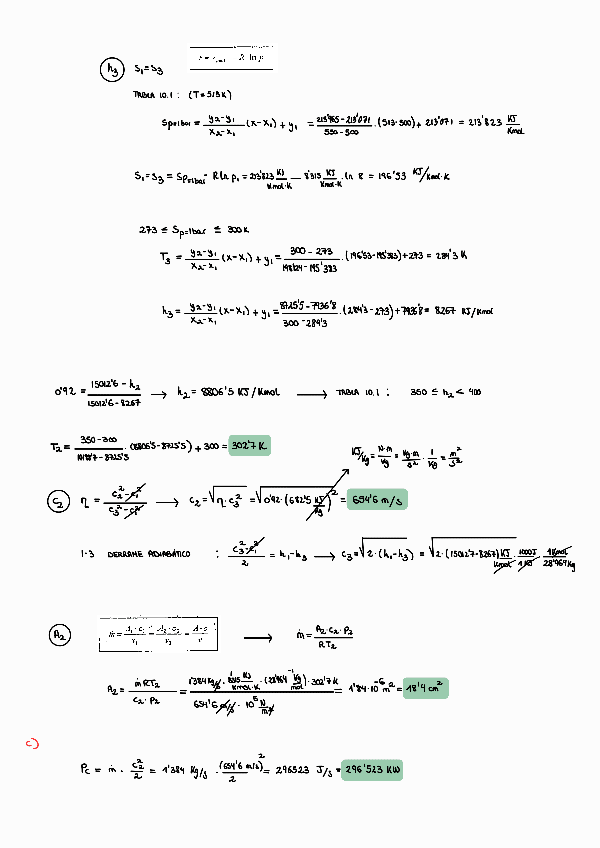 h3 S1=S3
TABLA 10.1 : (T=513K)
Sp=1bar = y2-y1/x2-x1 (x-x1) + y1 = 213'965-213'071/550-500 · (513-500) + 213'071 = 213'823 KJ/Kmol
S1=S3 = Sp=1bar - R ln p1 = 213'823 KJ/Kmol·K - 8'313 KJ/Kmol·K · ln 8 = 196'53 KJ/Kmol·K
273 ≤ Sp=1bar ≤ 300K
T3 = y2-y1/x2-x1 (x-x1) + y1 = 300-273/ · (196'53- )+273 = 284'3 K
h3 = y2-y1/x2-x1 (x-x1) + y1 = 8725'5-7936'8/300-284'3 · (284'3-273) + 7936'8 = 8267 KJ/Kmol
0'92 = 15012'6-h2/15012'6-8267 → h2 = 8806'5 KJ/Kmol → TABLA 10.1 : 350 ≤ h2 < 400
T2 = 350-300/ · (8806'5-8725'5) + 300 = 302'7 K
KJ/Kg = N·m/Kg = Kg·m/s² · 1/Kg = m²/s²
C2 η = c2²-c1²/c3²-c1² → c2 = √η·c3² = √0'92·(682'5 KJ/Kg)² = 654'6 m/s
1-3 DERRAME ADIABÁTICO : c3²-c1²/2 = h1-h3 → c3 = √2·(h1-h3) = √2·(15012'7-8267) KJ/Kmol · 1000J/1KJ · 1Kmol/28'964Kg
A2 → ṁ = A2·c2·P2/RT2
A2 = ṁRT2/c2·P2 = 1'384 Kg/s · KJ/Kmol·K · (28'964 Kg/mol)⁻¹ · 302'7K/654'6 m/s · 10⁵ N/m² = 1'84·10⁻⁶ m² = 18'4 cm²
c)
Pc = ṁ · c2²/2 = 1'384 Kg/s · (654'6 m/s)²/2 = 296523 J/s = 296'523 KW